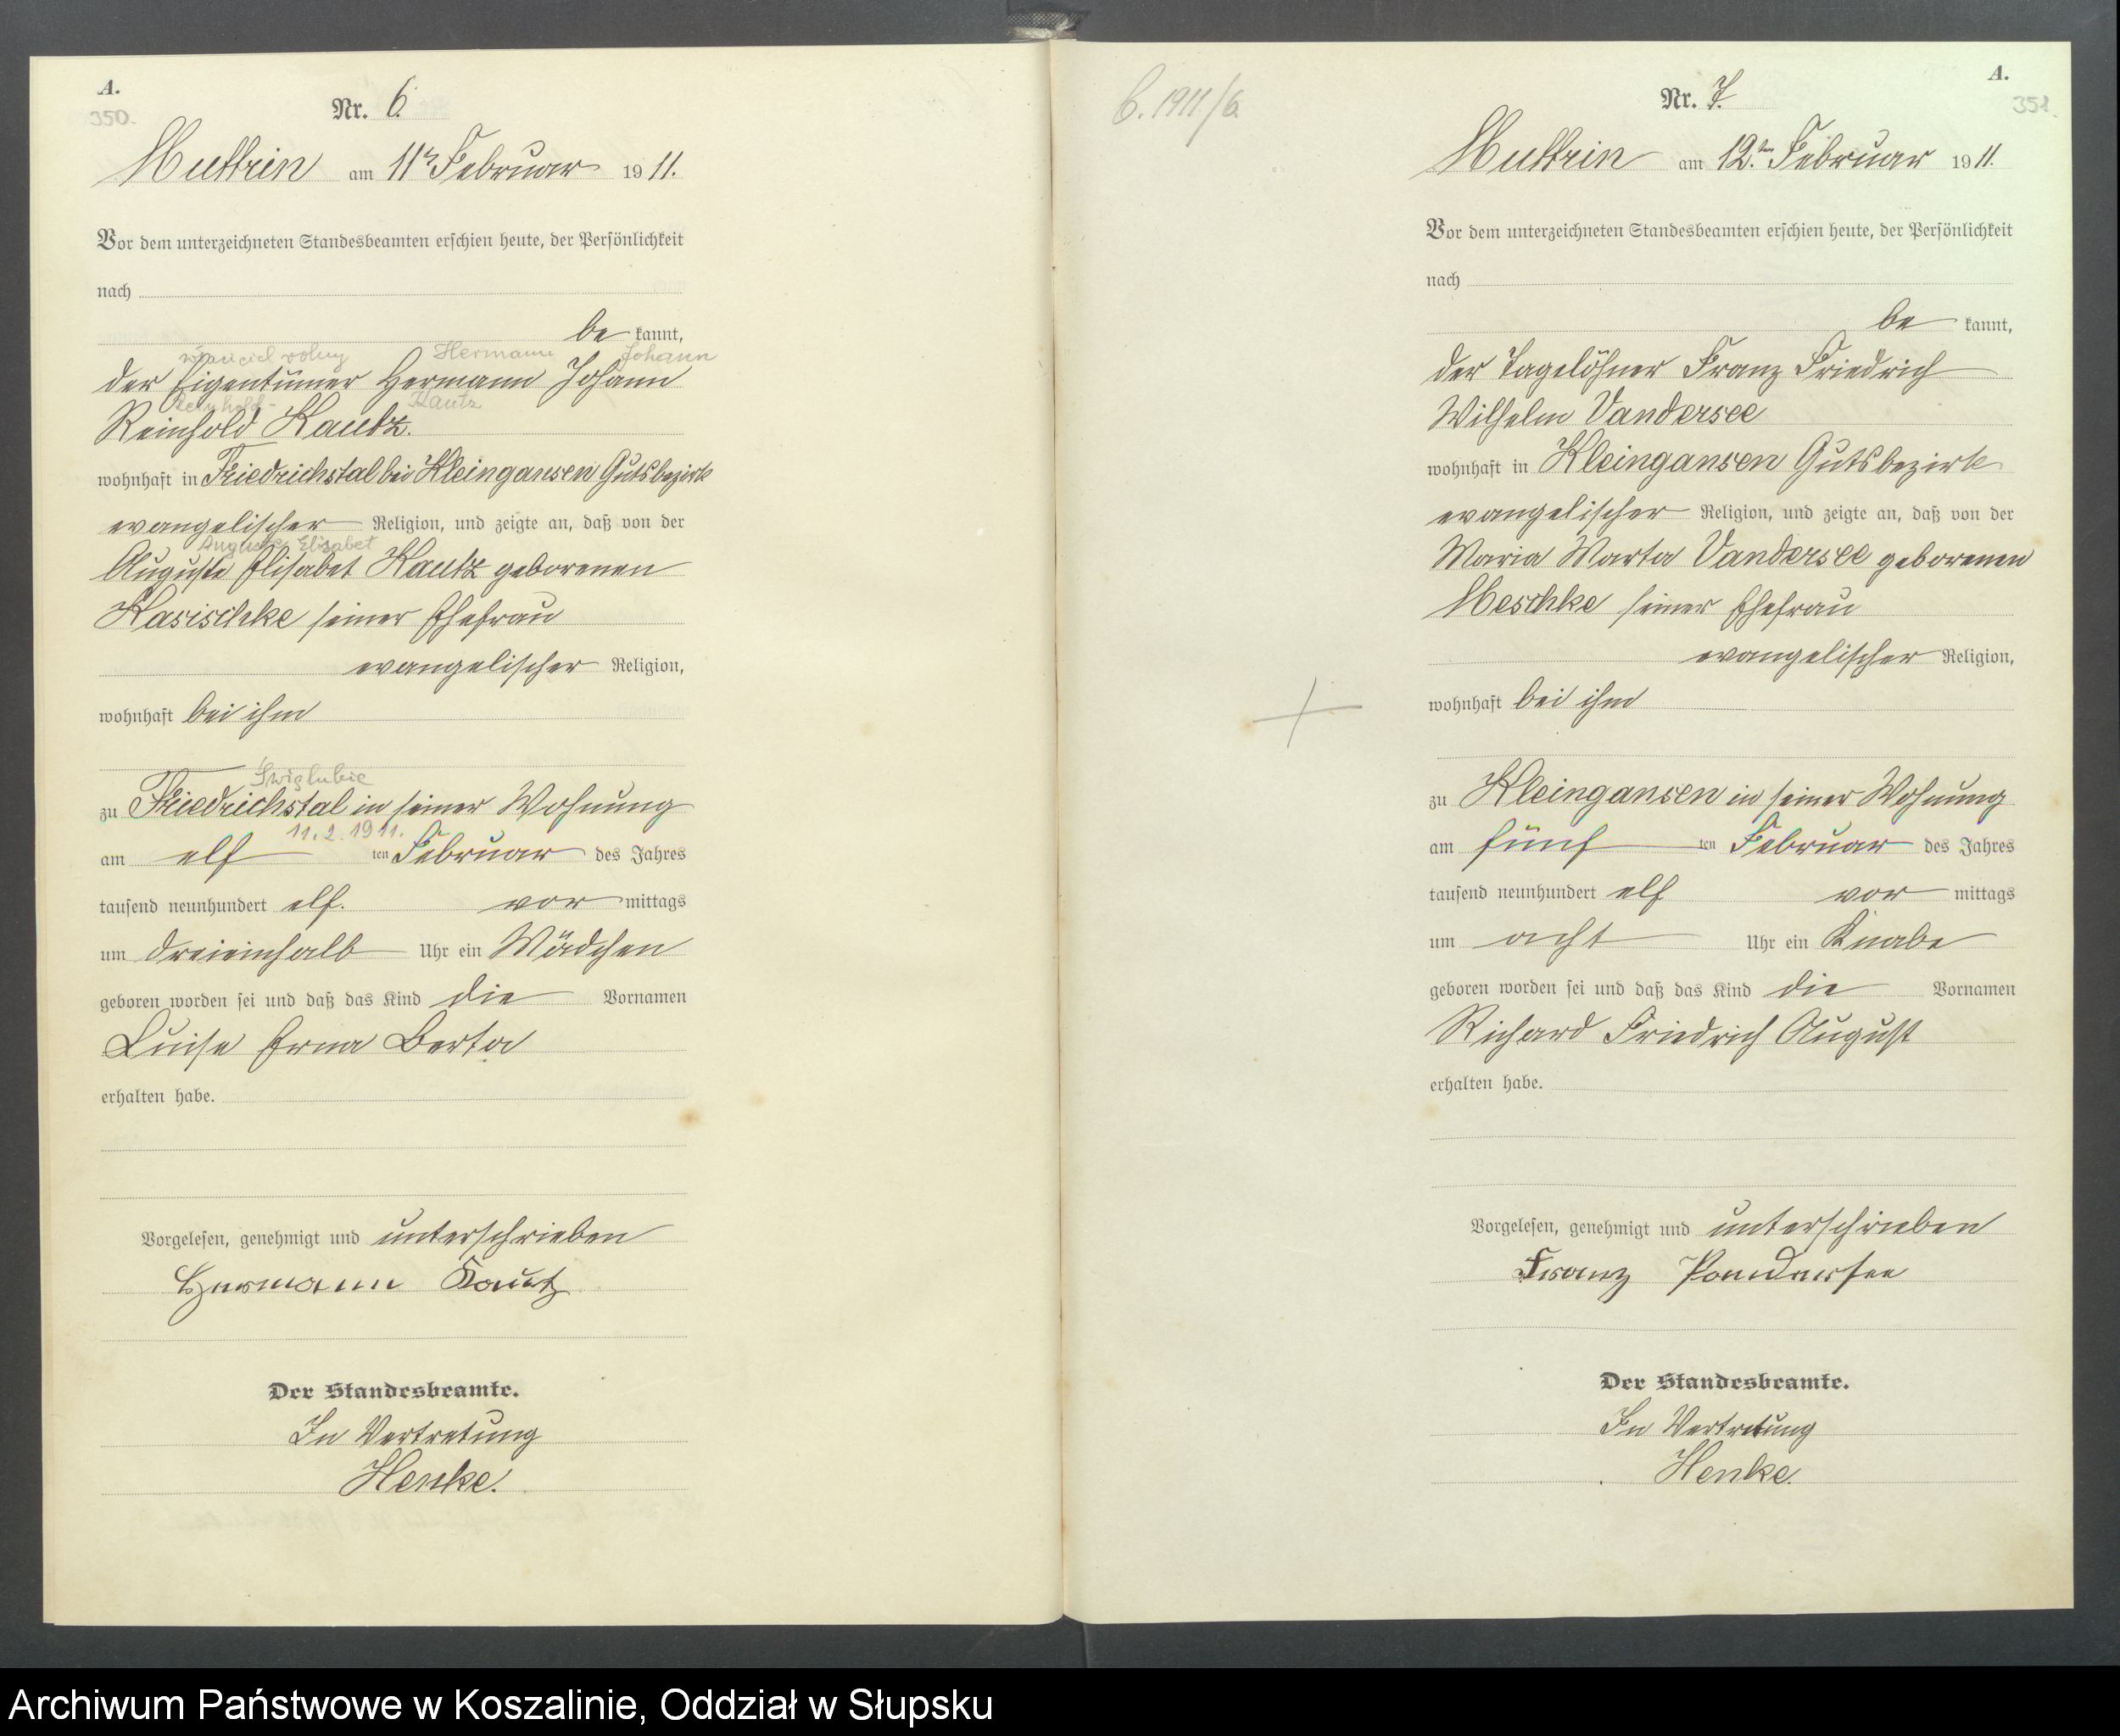 A.
350.
Nr. 6.
Muttrin am 11ten Februar 1911.
Vor dem unterzeichneten Standesbeamten erschien heute, der Persönlichkeit
nach
be kannt,
Hermann Johann
der Eigentümer Hermann Johann
Kautz
Reinhold Kautz.
wohnhaft in Friedrichstal bei Kleingansen Gutsbezirk
evangelischer Religion, und zeigte an, daß von der
Auguste Elisabet
Auguste Elisabet Kautz geborenen
Kasischke seiner Ehefrau
evangelischer Religion,
wohnhaft bei ihm
zu Friedrichstal in seiner Wohnung
11.2.1911.
am elf ten Februar des Jahres
tausend neunhundert elf. vor mittags
um dreieinhalb Uhr ein Mädchen
geboren worden sei und daß das Kind die Vornamen
Luise Erna Berta
erhalten habe.
Vorgelesen, genehmigt und unterschrieben
Hermann Kautz
Der Standesbeamte.
In Vertretung
Henke.
6.1911/6
A.
351.
Nr. 7.
Muttrin am 12.ten Februar 1911.
Vor dem unterzeichneten Standesbeamten erschien heute, der Persönlichkeit
nach
be kannt,
der Tagelöhner Franz Friedrich
Wilhelm Vandersee
wohnhaft in Kleingansen Gutsbezirk
evangelischer Religion, und zeigte an, daß von der
Maria Marta Vandersee geborenen
Meschke seiner Ehefrau
evangelischer Religion,
wohnhaft bei ihm
zu Kleingansen in seiner Wohnung
am fünf ten Februar des Jahres
tausend neunhundert elf vor mittags
um acht Uhr ein Knabe
geboren worden sei und daß das Kind die Vornamen
Richard Friedrich August
erhalten habe.
Vorgelesen, genehmigt und unterschrieben
Franz Vandersee
Der Standesbeamte.
In Vertretung
Henke.
Archiwum Państwowe w Koszalinie, Oddział w Słupsku